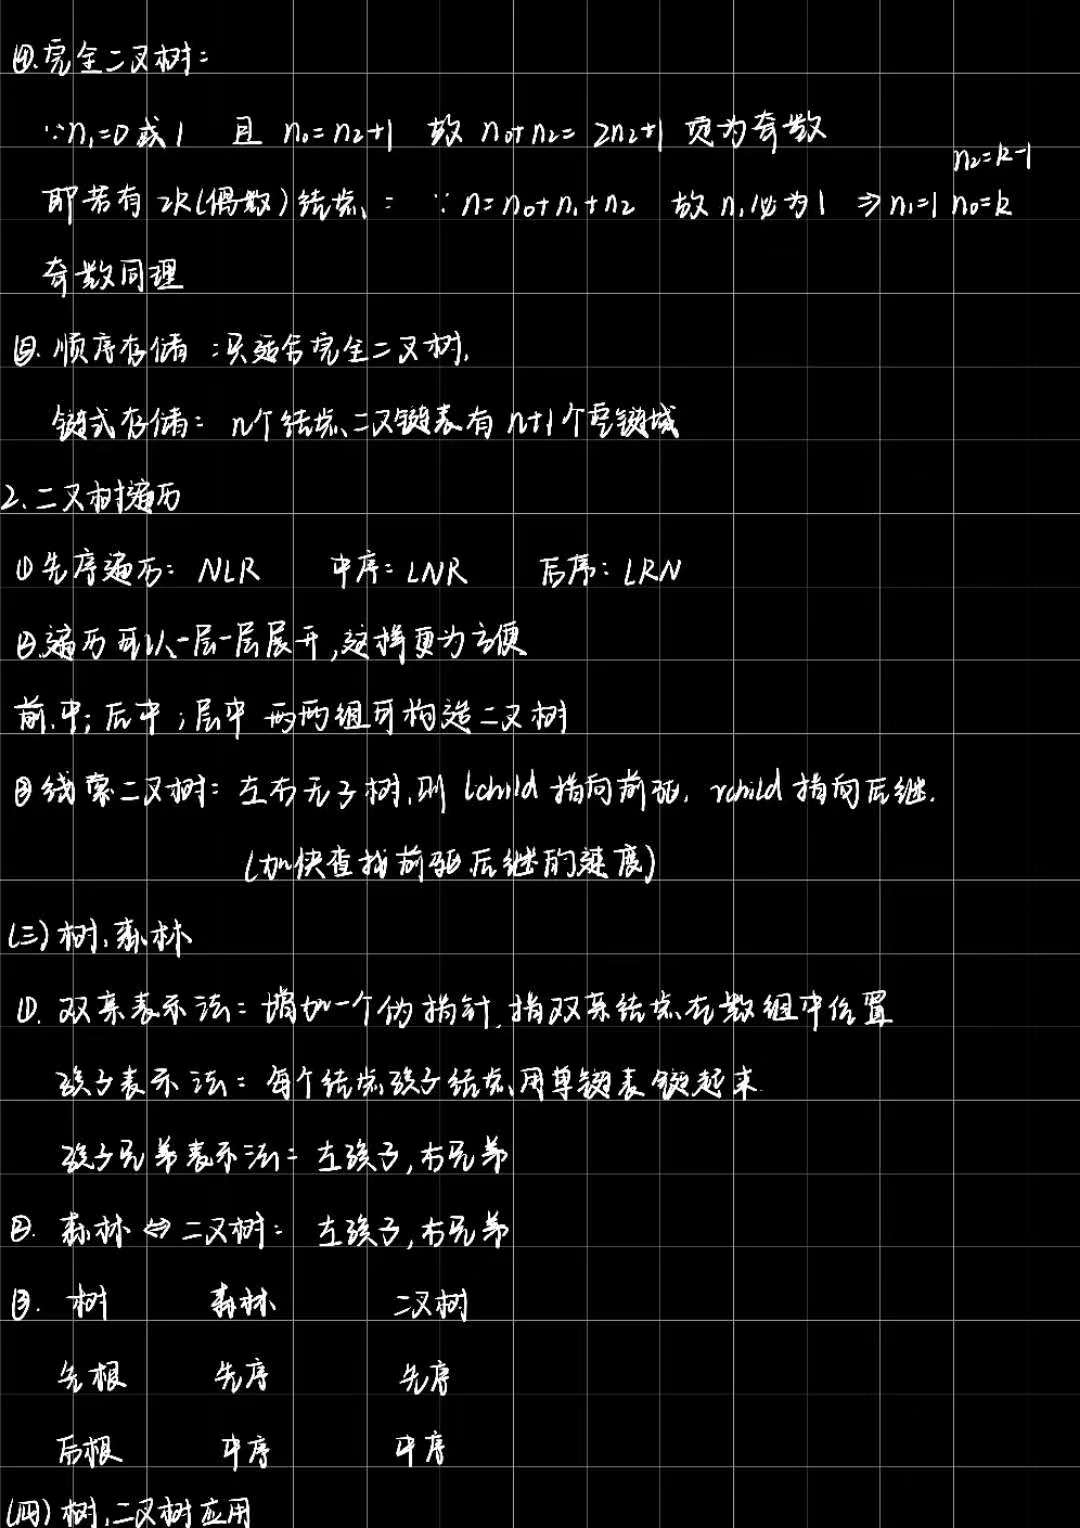 ④.完全二叉树:
∵n₁=0或1 且 n₀=n₂+1 故 n₀+n₂=2n₂+1 更为奇数
n₂=k-1
即若有2k(偶数)结点: ∵n=n₀+n₁+n₂ 故n₁必为1 ⇒n₁=1 n₀=k
奇数同理
⑤.顺序存储:只适合完全二叉树.
链式存储: n个结点、二叉链表有n+1个空链域
2.二叉树遍历
①先序遍历: NLR 中序: LNR 后序: LRN
②遍历可以一层一层展开,这样更为方便
前.中; 后中;层中 两两组可构造二叉树
③线索二叉树: 左右无子树.则 lchild 指向前驱, rchild 指向后继.
(加快查找前驱.后继的速度)
(三)树.森林
①. 双亲表示法: 增加一个伪指针,指双亲结点在数组中位置
孩子表示法: 每个结点孩子结点用单链表链起来.
孩子兄弟表示法: 左孩子,右兄弟
②. 森林⇔二叉树: 左孩子,右兄弟
③. 树 森林 二叉树
先根 先序 先序
后根 中序 中序
(四)树,二叉树应用